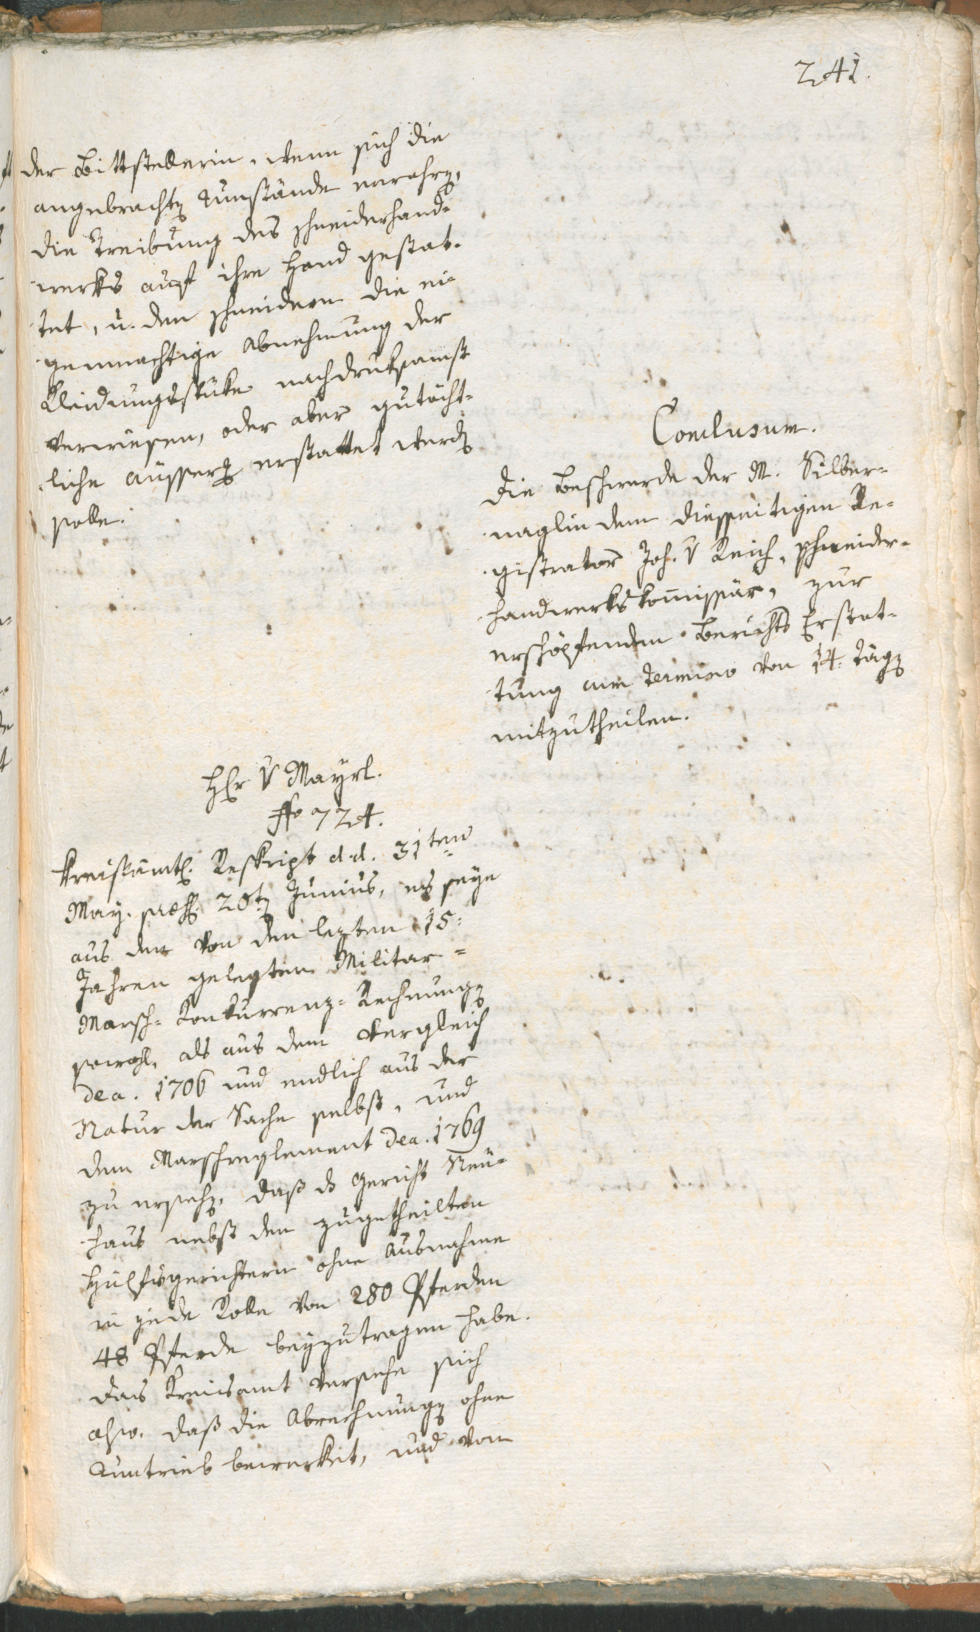 241.
der Bittstellerin, wenn sich die
angebrachtē Umstände erwahrē,
die Treibung des schneiderhand-
werks auf ihre Hand gestat-
tet, u. den schneidern die ei-
genmächtige Abnehmung der
Kleidungsstüke nachdruksamst
verwiesen, oder aber gutächt-
liche äusserg erstattet werdē
solle.
Conclusum.
Die Beschwerde der M. Silber-
naglin dem diesseitigen Re-
gistrator Joh. v Reich, schneider-
handwerkskom̄issär, zur
erschöpfenden Berichts Erstat-
tung cum Termino von 14. Tägē
mitzutheilen.
Hr v Mayrl.
No 724.
Kreisämtl. Reskript d. d. 31ten
May. præs. 20tē Junius, es seye
aus der von den lezten 15.
Jahren gelegten Militar-
Marsch-Konkurrenz-Rechnungē
sowohl, als aus dem Vergleich
de a. 1706 und endlich aus der
Natur der Sache selbst, und
dem Marschreglement de a. 1769
zu ersehē, daß d Gericht Neu-
haus nebst den zugetheilten
Hülfsgerichtern ohne Ausnahme
in jede Rolle von 280 Pferden
48 Pferde beyzutragen habe.
Das Kreisamt versehe sich
also, daß die Abrechnungē ohne
Umtrieb bewerkt, und von